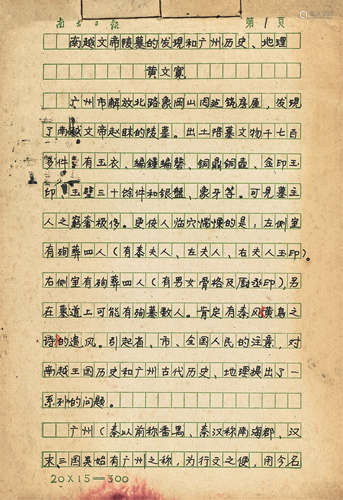 南方日报 第1页
南越文帝陵墓的发现和广州历史、地理
黄文宽
广州市解放北路象岗山因建筑房屋,发现
了南越文帝赵眜的陵墓。出土陪墓文物千七百
多件:有玉衣、编钟编磬、铜鼎铜壶、金印玉
印、玉璧三十馀件和银盤、象牙等。可見墓主
人之窮奢极侈。更使人临穴惴慄的是,左側室
有殉葬四人(有泰夫人、左夫人、右夫人玉印)。
右側室有殉葬四人(有男女骨格及廚丞印),另
在墓道上可能有殉墓数人。肯定有秦风黄鳥之
诗的遗风。引起省、市、全国人民的注意,对
南越王国历史和广州古代历史、地理提出了一
系列的问题。
广州(秦以前称番禺、秦汉称南海郡、汉
末三国吴始有广州之称,为行文之便,用今名
20×15=300